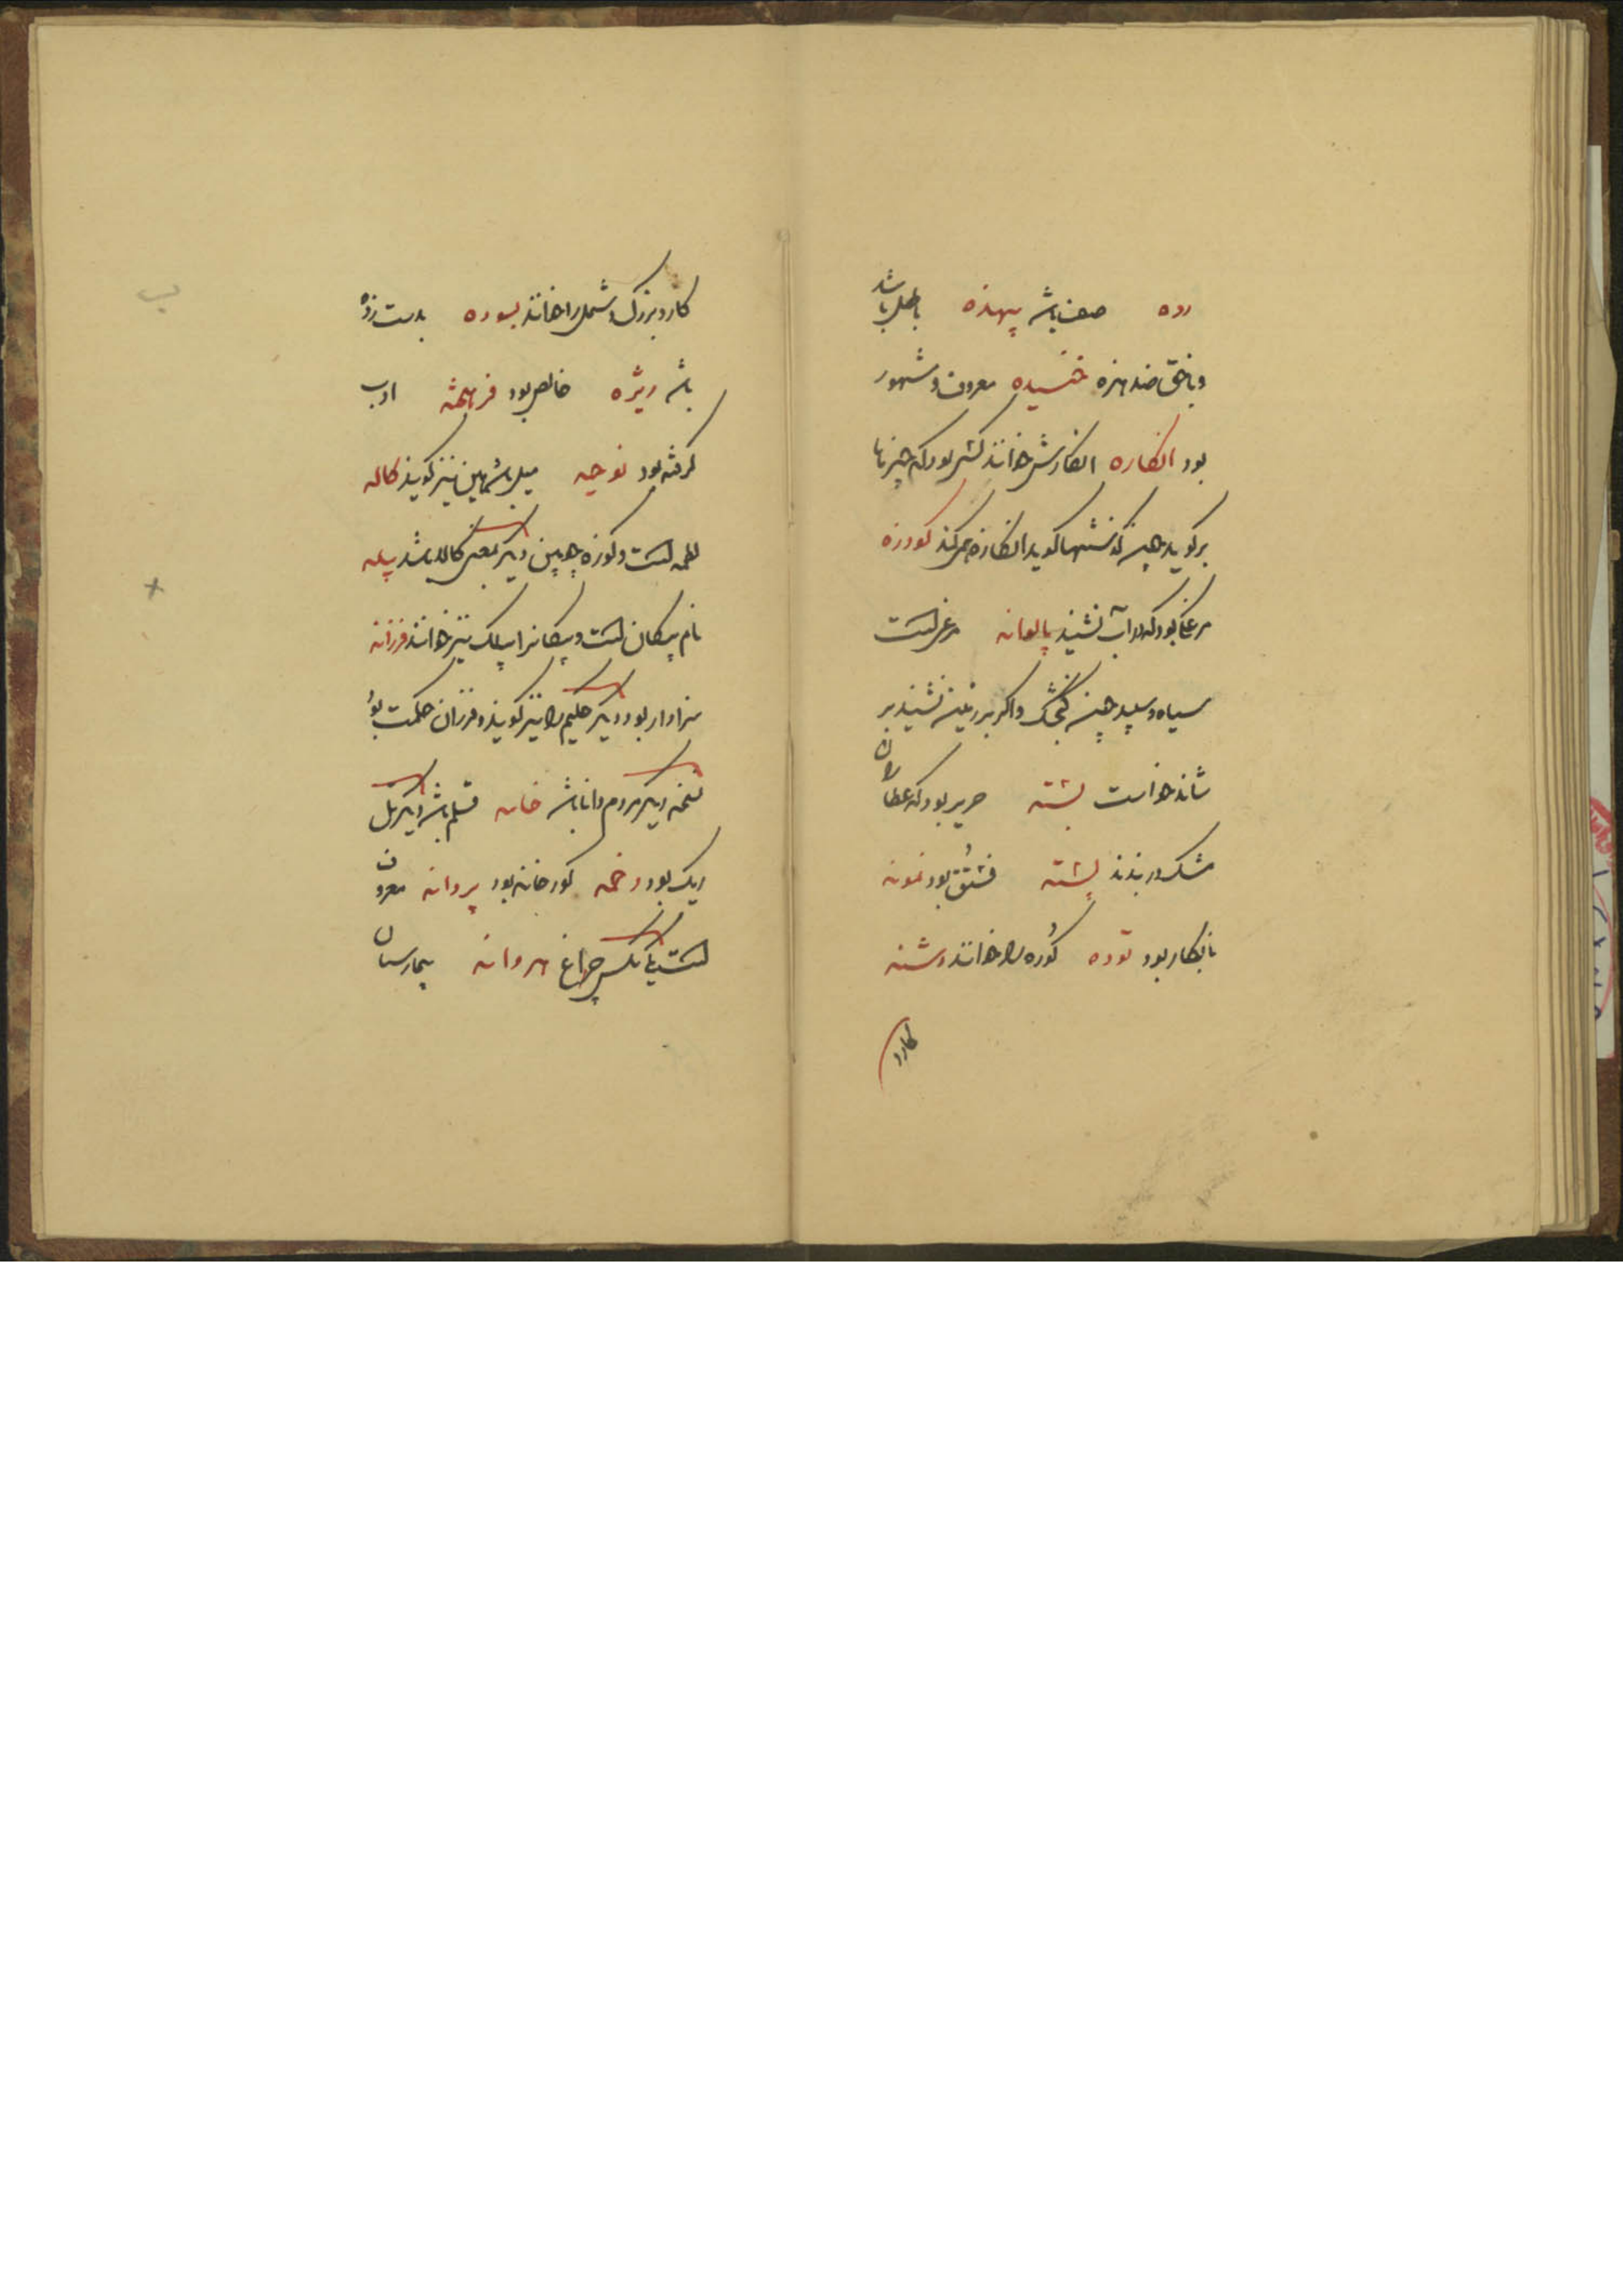 رده صف باشد بیهذه باطل باشد
و ناحق ضد هزه خنیده معروف و مشهور
بود انگاره انگارش خوانند کسی بود که چیزها
برگوید چیز گذشتها گوید انگاره همی کند کودره
مرغکی بود که در آب نشیند پالوانه مرغی است
سیاه و سپید چند گنجشک و اگر بر زمین نشیند بر
نتواند خواست بسته حریر بود که عطاران
مشک در بندند پسته فستق بود نمونه
نابکار بود توده کوره را خوانند دشنه
کارد
کارد بزرگ و شمل را خوانند بسوده بدست زده
باشد ویژه خالص بود فرهخته ادب
گرفته بود نوجبه سیل باشد همین نیز گویند کاله
است و کوزه چوبین دیگر معنی کاله باشد پیله
نام پیکان است و پیکانرا پیلک نیز خوانند فرزانه
سزاوار بود دیگر حکیم را نیز گویند و فرزان حکمت بود
نسخه دیگر مردم دانا باشد خامه قلم باشد دیگر تل
ریک بود دخمه گورخانه بود پروانه معروف
است چراغ هروانه بیمارستان